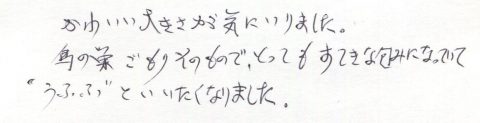 かわいい大きさが気にいりました。
鳥の巣ごもりそのもので、とってもすてきな包みになっていて
"うふふ"といいたくなりました。